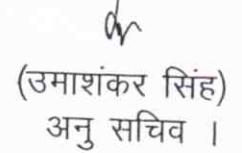 (उमाशंकर सिंह)
अनु सचिव ।